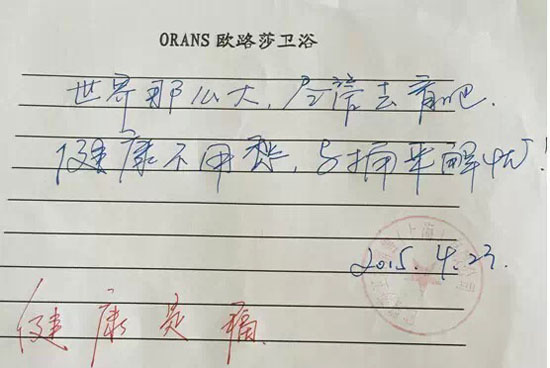 ORANS 欧路莎卫浴
世界那么大,尽情去看吧.
健康不用愁,与擁平解忧!
2015.4.23.
健康是福.